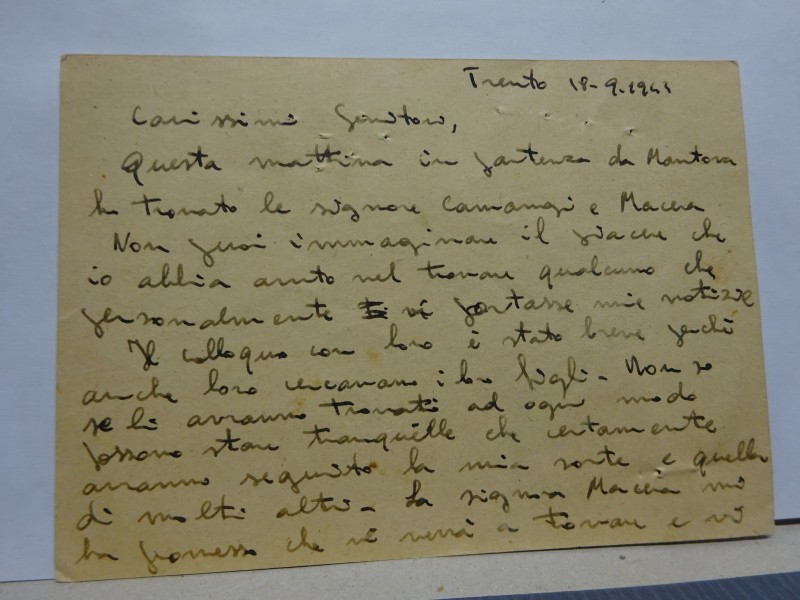 Trento 18-9-1943
Carissimi Genitori,
Questa mattina in partenza da Mantova
ho trovato le signore Camangi e Macera
Non puoi immaginare il piacere che
io abbia avuto nel trovare qualcuno che
personalmente vi portasse mie notizie
Il colloquio con loro è stato breve perché
anche loro cercavano i loro figli - Non so
se li avranno trovati ad ogni modo
possono stare tranquille che certamente
avranno seguito la mia sorte e quella
di molti altri - La signora Macera mi
ha promesso che vi verrà a trovare e vi